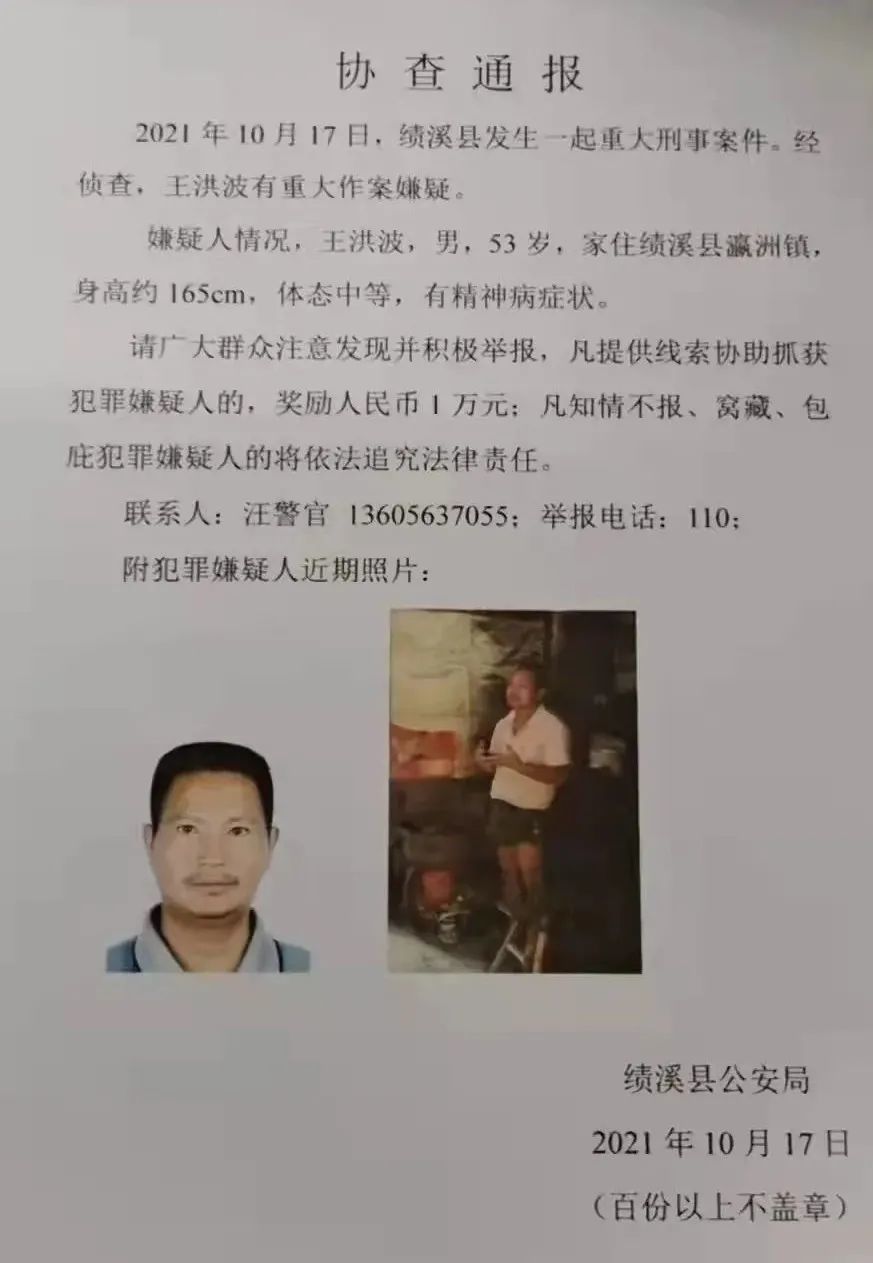 协查通报
2021年10月17日，绩溪县发生一起重大刑事案件。经
侦查，王洪波有重大作案嫌疑。
嫌疑人情况，王洪波，男，53岁，家住绩溪县瀛洲镇，
身高约165cm，体态中等，有精神病症状。
请广大群众注意发现并积极举报，凡提供线索协助抓获
犯罪嫌疑人的，奖励人民币1万元；凡知情不报、窝藏、包
庇犯罪嫌疑人的将依法追究法律责任。
联系人：汪警官 13605637055；举报电话：110；
附犯罪嫌疑人近期照片：
绩溪县公安局
2021年10月17日
（百份以上不盖章）